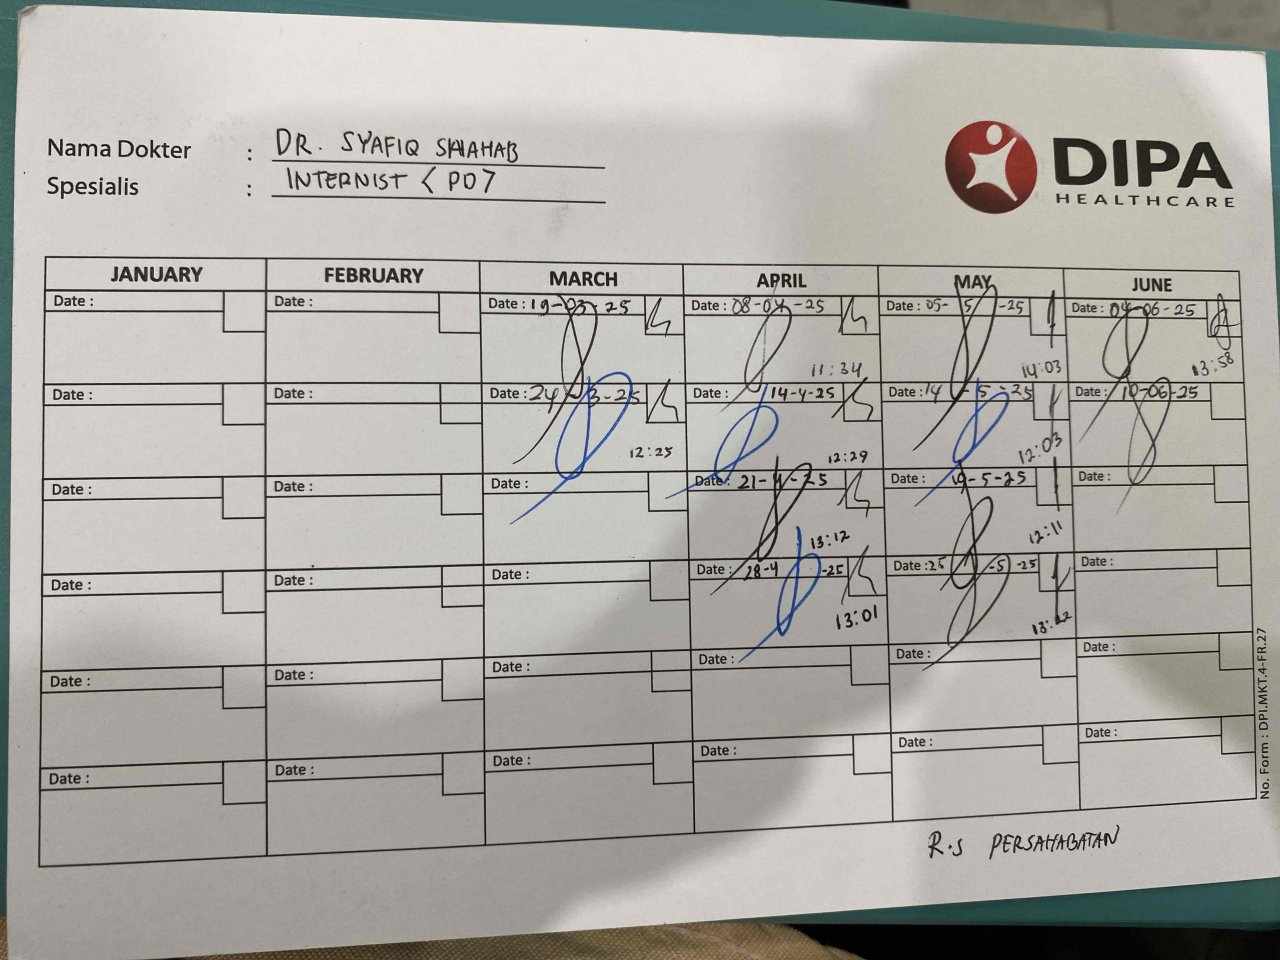 Nama Dokter : DR. SYAFIQ SHAHAB
Spesialis : INTERNIST < PD7
DIPA
HEALTHCARE
JANUARY FEBRUARY MARCH APRIL MAY JUNE
Date : Date : Date : 19-03-25 Date : 08-04-25 Date : 05-5-25 Date : 04-06-25
11:34 14:03 13:58
Date : Date : Date : 24-3-25 Date : 14-4-25 Date : 14-5-25 Date : 10-06-25
12:25 12:29 12:03
Date : Date : Date : Date : 21-4-25 Date : 19-5-25 Date :
13:12 12:11
Date : Date : Date : Date : 28-4-25 Date : 25-5-25 Date :
13:01
Date : Date : Date : Date : Date : Date :
Date : Date : Date : Date : Date : Date :
No. Form : DPI.MKT.4-FR.27
R.S PERSAHABATAN